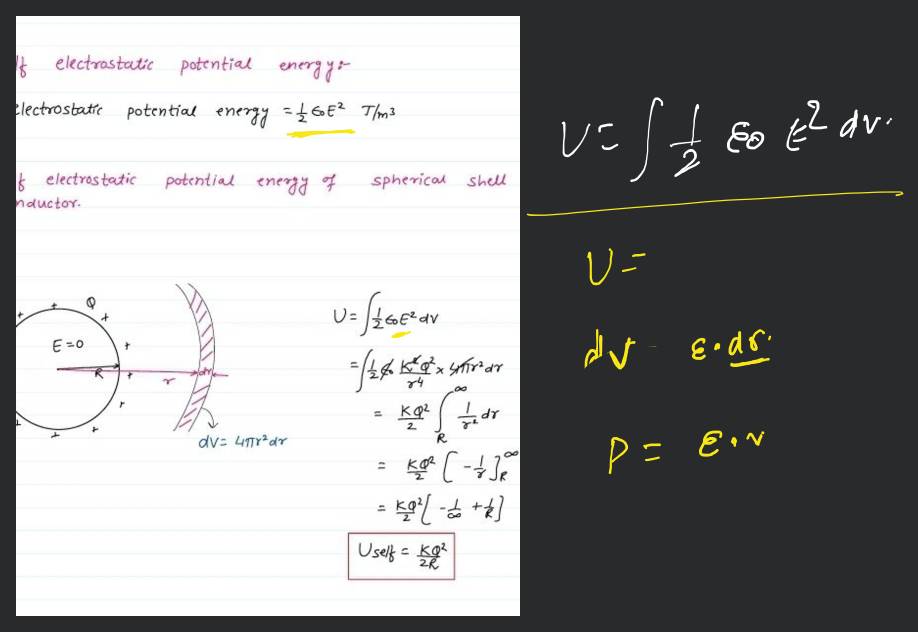 lf electrostatic potential energy:-
electrostatic potential energy = 1/2 ε0E² J/m³
f electrostatic potential energy of spherical shell
nductor.
Q
E=0
R
r
dr
dV= 4πr²dr
U= ∫ 1/2 ε0E² dV
= ∫ 1/2 ε0 K²Q²/r4 × 4πr²dr
= KQ²/2 ∫R∞ 1/r² dr
= KQ²/2 [-1/r]R∞
= KQ²/2 [-1/∞ + 1/R]
Uself = KQ²/2R
U= ∫ 1/2 ε0 E² dv.
U=
dv - E.dr.
P = E.v